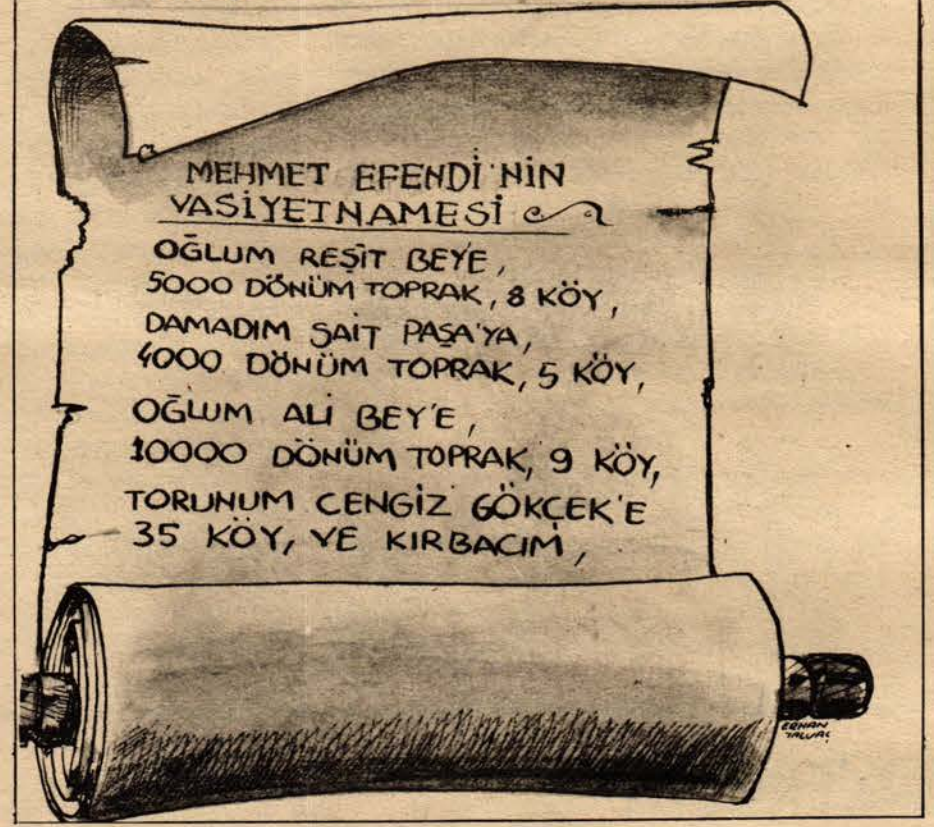 MEHMET EFENDİ'NİN
VASİYETNAMESİ
OĞLUM REŞİT BEY'E,
5000 DÖNÜM TOPRAK, 8 KÖY,
DAMADIM SAİT PAŞA'YA,
4000 DÖNÜM TOPRAK, 5 KÖY,
OĞLUM ALİ BEY'E,
10000 DÖNÜM TOPRAK, 9 KÖY,
TORUNUM CENGİZ GÖKÇEK'E
35 KÖY, VE KIRBACIM,
ERHAN
YALVAÇ